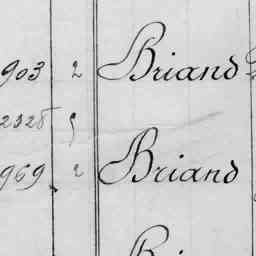 903 2 Briand
2328 5
969 2 Briand